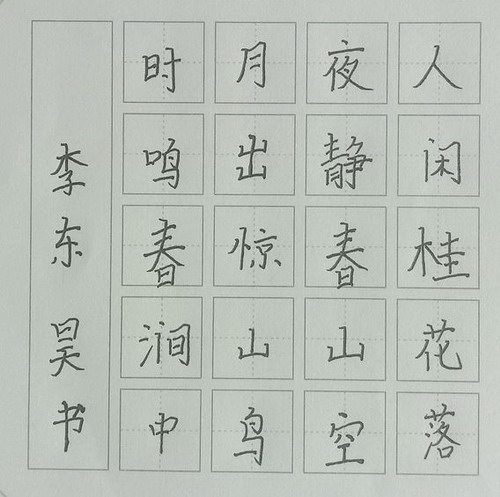 人闲桂花落
夜静春山空
月出惊山鸟
时鸣春涧中
李东昊书